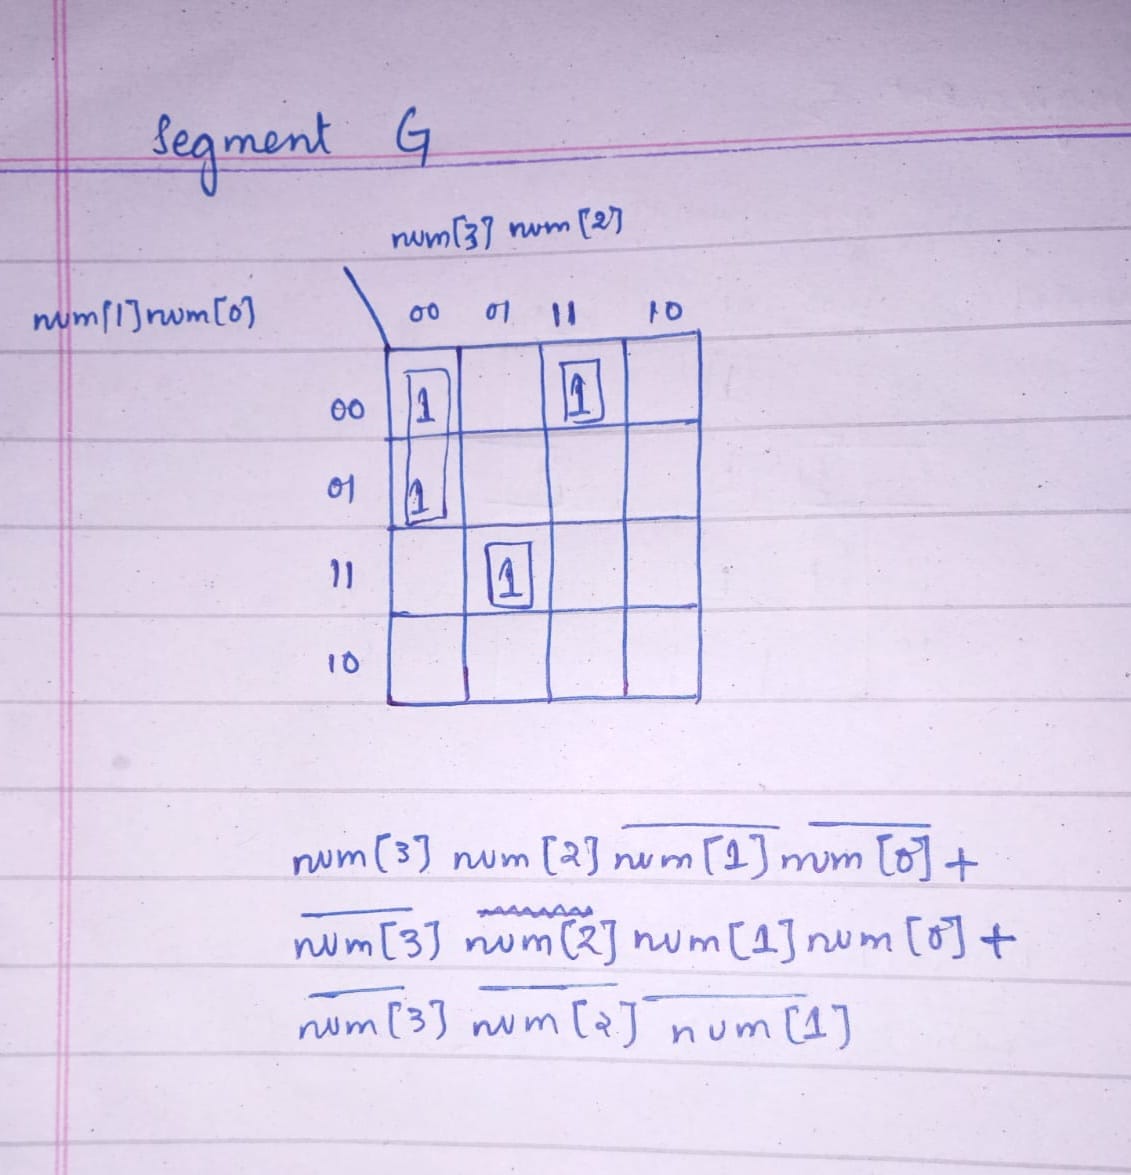 Segment G
num[3] num[2]
num[1] num[0]
00 01 11 10
00 1 1
01 1
11 1
10
num[3] num[2] n̅u̅m̅[̅1̅]̅ n̅u̅m̅[̅0̅]̅ +
n̅u̅m̅[̅3̅]̅ num[2] num[1] num[0] +
n̅u̅m̅[̅3̅]̅ n̅u̅m̅[̅2̅]̅ n̅u̅m̅[̅1̅]̅